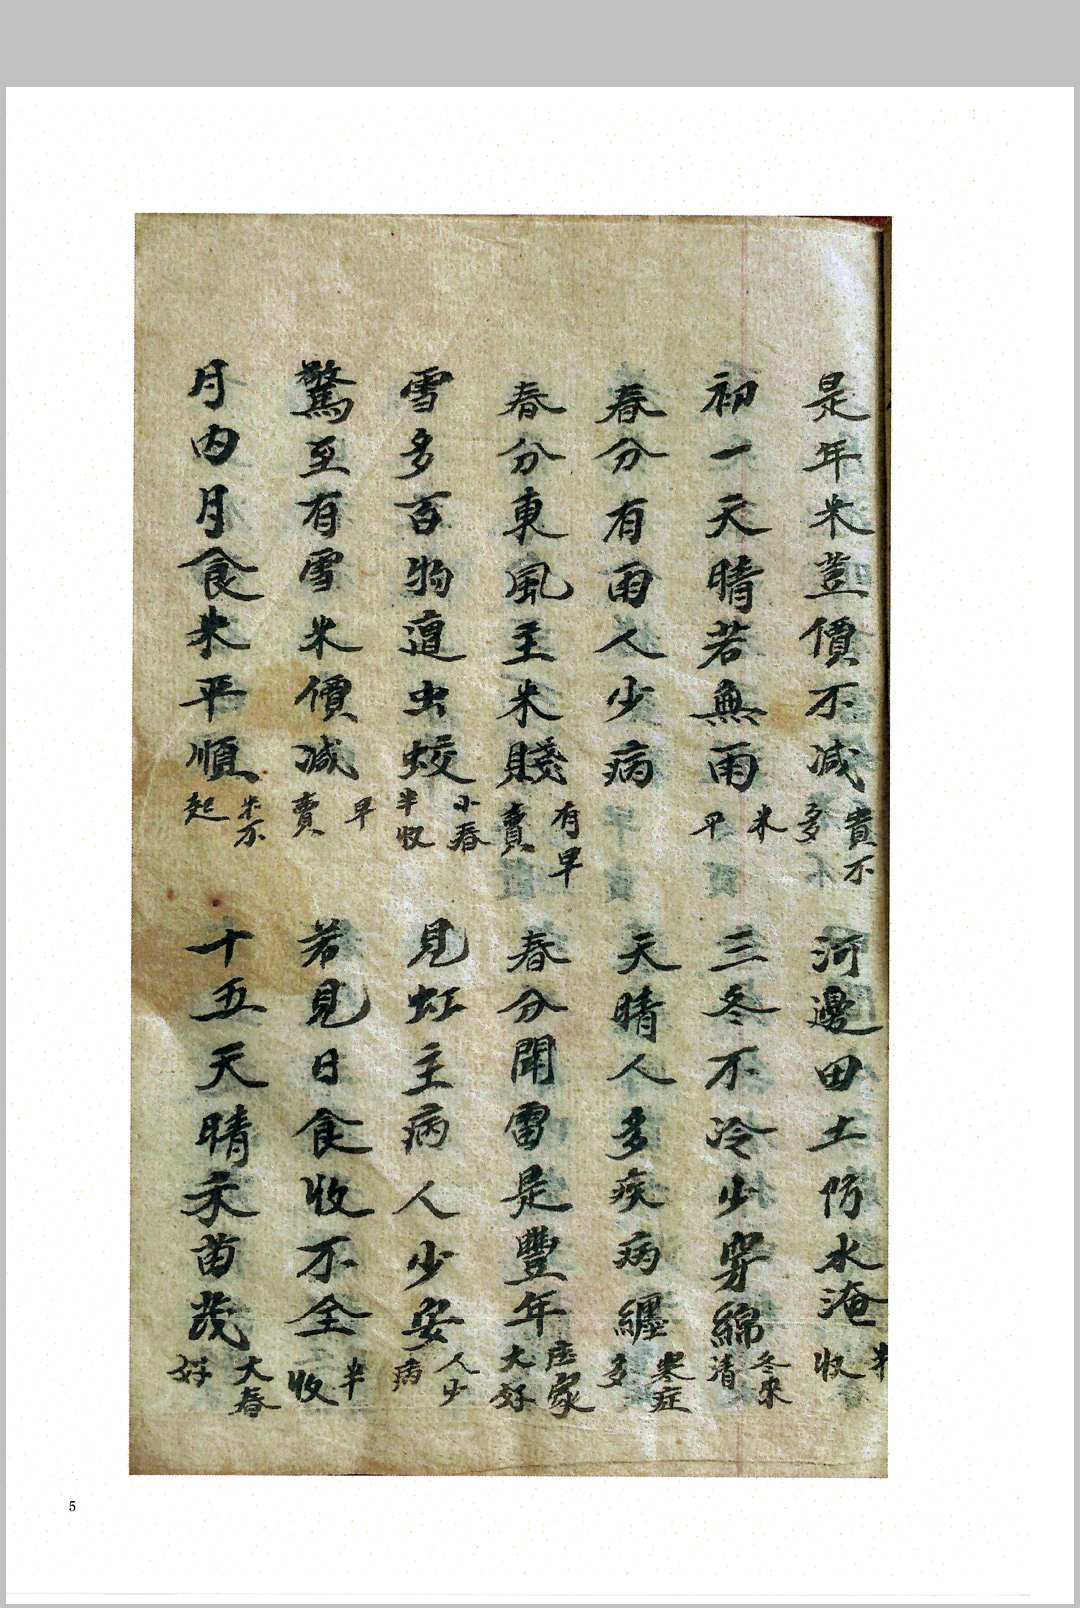 是年米荳價不減 貴不多 河邊田土防水淹 半收
初一天晴若無雨 米平 三冬不冷少穿綿 冬來清
春分有雨人少病 天晴人多疾病纏 寒症多
春分東風主米賤 有早賣 春分聞雷是豐年 庄家大好
雪多百物遭虫蛟 小春半收 見虹主病人少安 人少病
驚至有雪米價減 早賣 若見日食收不全 半收
月內月食米平順 米不起 十五天晴禾苗茂 大春好
5